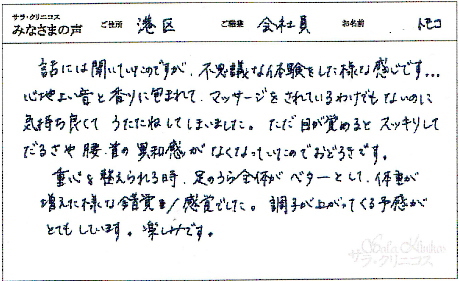 サラ・クリニコス
みなさまの声 ご住所 港区 ご職業 会社員 お名前 トモコ
話には聞いていたのですが、不思議な体験をした様な感じです…
心地よい音と香りに包まれて、マッサージをされているわけでもないのに
気持ち良くて うたたねしてしまいました。ただ目が覚めると スッキリして
だるさや 腰、首の 異和感がなくなっていたのでおどろきです。
重心を整えられる時、足のうら全体が ベターとして、体重が
増えた様な錯覚を/感覚でした。調子が上がってくる予感が
とてもしています。楽しみです。
サラ・クリニコス